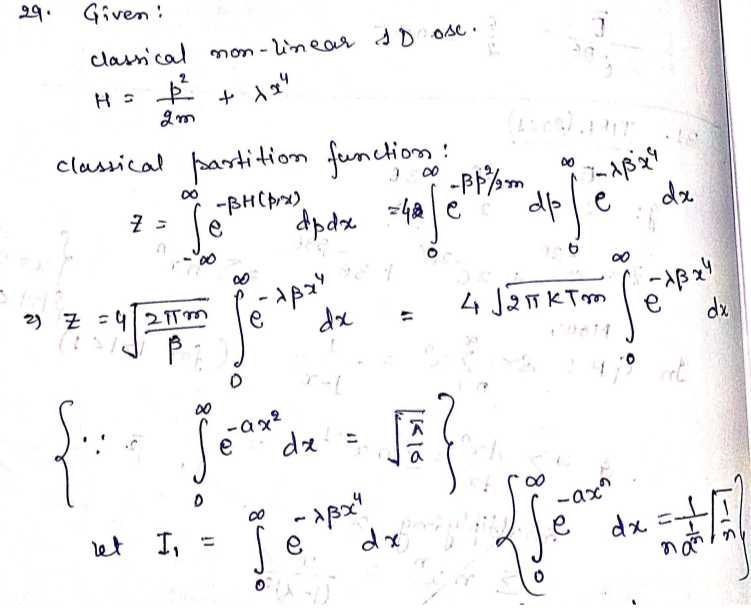 29. Given:
classical non-linear 1D osc.
H = p²/2m + λx⁴
classical partition function:
Z = ∫_{-∞}^{∞} e^{-βH(p,x)} dp dx = 4 ∫_0^∞ e^{-βp²/2m} dp ∫_0^∞ e^{-λβx⁴} dx
⇒ Z = 4 √(2πm/β) ∫_0^∞ e^{-λβx⁴} dx = 4 √(2πkTm) ∫_0^∞ e^{-λβx⁴} dx
{∵ ∫_0^∞ e^{-ax²} dx = √(π/a)}
let I₁ = ∫_0^∞ e^{-λβx⁴} dx {∫_0^∞ e^{-axⁿ} dx = 1/(n a^{1/n}) Γ(1/n)}